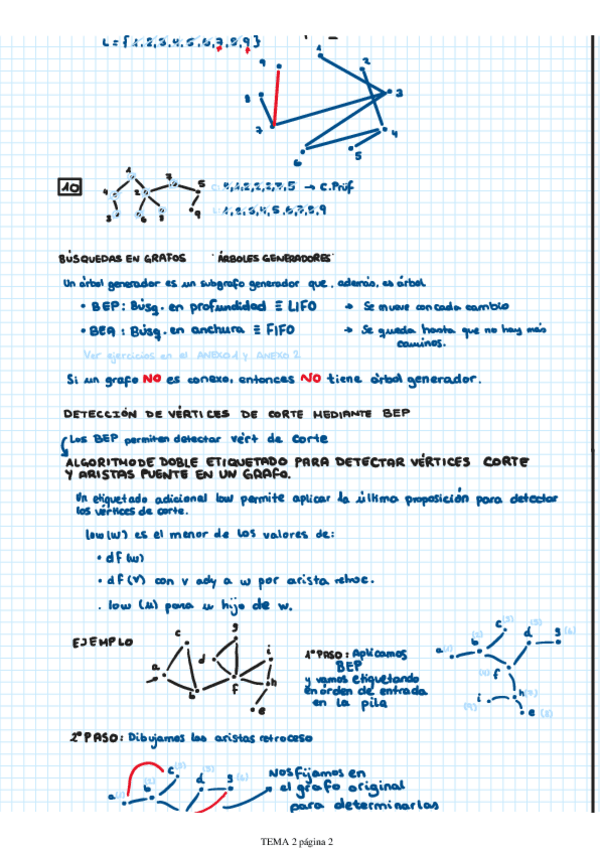 L = {1,2,3,4,5,6,7,8,9}
1
2
9
8
3
7
4
6
5
10
1
7
4
2
5
3
6
8
9
→ C. Prüf
L: 1,2,3,4,5,6,7,8,9
BÚSQUEDAS EN GRAFOS "ÁRBOLES GENERADORES"
Un árbol generador es un subgrafo generador que, además, es árbol
• BEP: Búsq. en profundidad ≡ LIFO → Se mueve con cada cambio
• BEA: Búsq. en anchura ≡ FIFO → Se queda hasta que no hay más
caminos.
Ver ejercicios en el ANEXO 1 y ANEXO 2
Si un grafo NO es conexo, entonces NO tiene árbol generador.
DETECCIÓN DE VÉRTICES DE CORTE MEDIANTE BEP
Los BEP permiten detectar vért de corte
ALGORITMO DE DOBLE ETIQUETADO PARA DETECTAR VÉRTICES CORTE
Y ARISTAS PUENTE EN UN GRAFO.
Un etiquetado adicional low permite aplicar la última proposición para detectar
los vértices de corte.
low(w) es el menor de los valores de:
• df(w)
• df(v) con v ady a w por arista retroc.
• low(u) para u hijo de w.
EJEMPLO
c
g
d
i
a
b
f
h
e
1º PASO: Aplicamos
BEP
y vamos etiquetando
en órden de entrada
en la pila
c (3)
d (5)
g (6)
b (2)
a (1)
f
i
h
e (8)
2º PASO: Dibujamos las aristas retroceso
c (3)
d (5)
g (6)
b (2)
a
Nos fijamos en
el grafo original
para determinarlas
TEMA 2 página 2